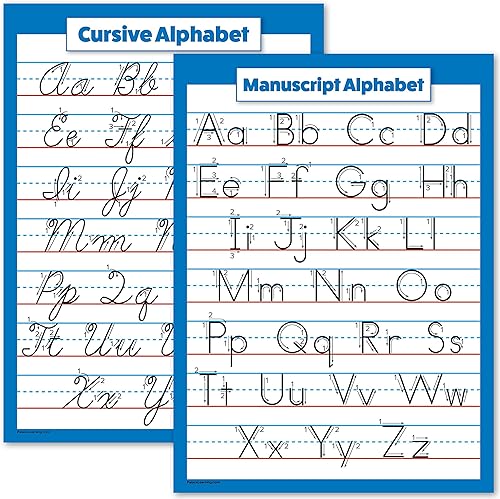 Cursive Alphabet
Aa Bb
Ee Ff
Ii Jj
Mm n
Pp Qq
Tt Uu
Xx Y
Manuscript Alphabet
Aa Bb Cc Dd
Ee Ff Gg Hh
Ii Jj Kk Ll
Mm Nn Oo
Pp Qq Rr Ss
Tt Uu Vv Ww
Xx Yy Zz